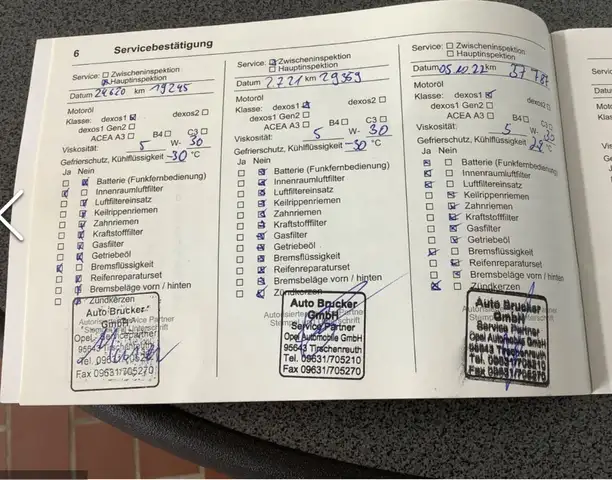 6 Servicebestätigung
Service: Zwischeninspektion
Hauptinspektion
Datum 24620 km 19245
Motoröl
Klasse: dexos1 dexos2
dexos1 Gen2
ACEA A3 B4 C3
Viskosität: 5 W- 30
Gefrierschutz, Kühlflüssigkeit -30 °C
Ja Nein
Batterie (Funkfernbedienung)
Innenraumluftfilter
Luftfiltereinsatz
Keilrippenriemen
Zahnriemen
Kraftstofffilter
Gasfilter
Getriebeöl
Bremsflüssigkeit
Reifenreparaturset
Bremsbeläge vorn / hinten
Zündkerzen
Auto Brucker
GmbH
Opel
Tel. 09631/705210
Fax 09631/705270
Service: Zwischeninspektion
Hauptinspektion
Datum 2721 km 29369
Motoröl
Klasse: dexos1 dexos2
dexos1 Gen2
ACEA A3 B4 C3
Viskosität: 5 W- 30
Gefrierschutz, Kühlflüssigkeit -30 °C
Ja Nein
Batterie (Funkfernbedienung)
Innenraumluftfilter
Luftfiltereinsatz
Keilrippenriemen
Zahnriemen
Kraftstofffilter
Gasfilter
Getriebeöl
Bremsflüssigkeit
Reifenreparaturset
Bremsbeläge vorn / hinten
Zündkerzen
Auto Brucker
GmbH
Service Partner
Opel Automobile GmbH
95643 Tirschenreuth
Tel. 09631/705210
Fax 09631/705270
Service: Zwischeninspektion
Hauptinspektion
Datum 05 10 22 km
Motoröl
Klasse: dexos1 dexos2
dexos1 Gen2
ACEA A3 B4 C3
Viskosität: 5 W- 30
Gefrierschutz, Kühlflüssigkeit 28 °C
Ja Nein
Batterie (Funkfernbedienung)
Innenraumluftfilter
Luftfiltereinsatz
Keilrippenriemen
Zahnriemen
Kraftstofffilter
Gasfilter
Getriebeöl
Bremsflüssigkeit
Reifenreparaturset
Bremsbeläge vorn / hinten
Zündkerzen
Auto Brucker
GmbH
Service Partner
Opel Automobile GmbH
95643 Tirschenreuth
Tel. 09631/705210
Fax 09631/705270